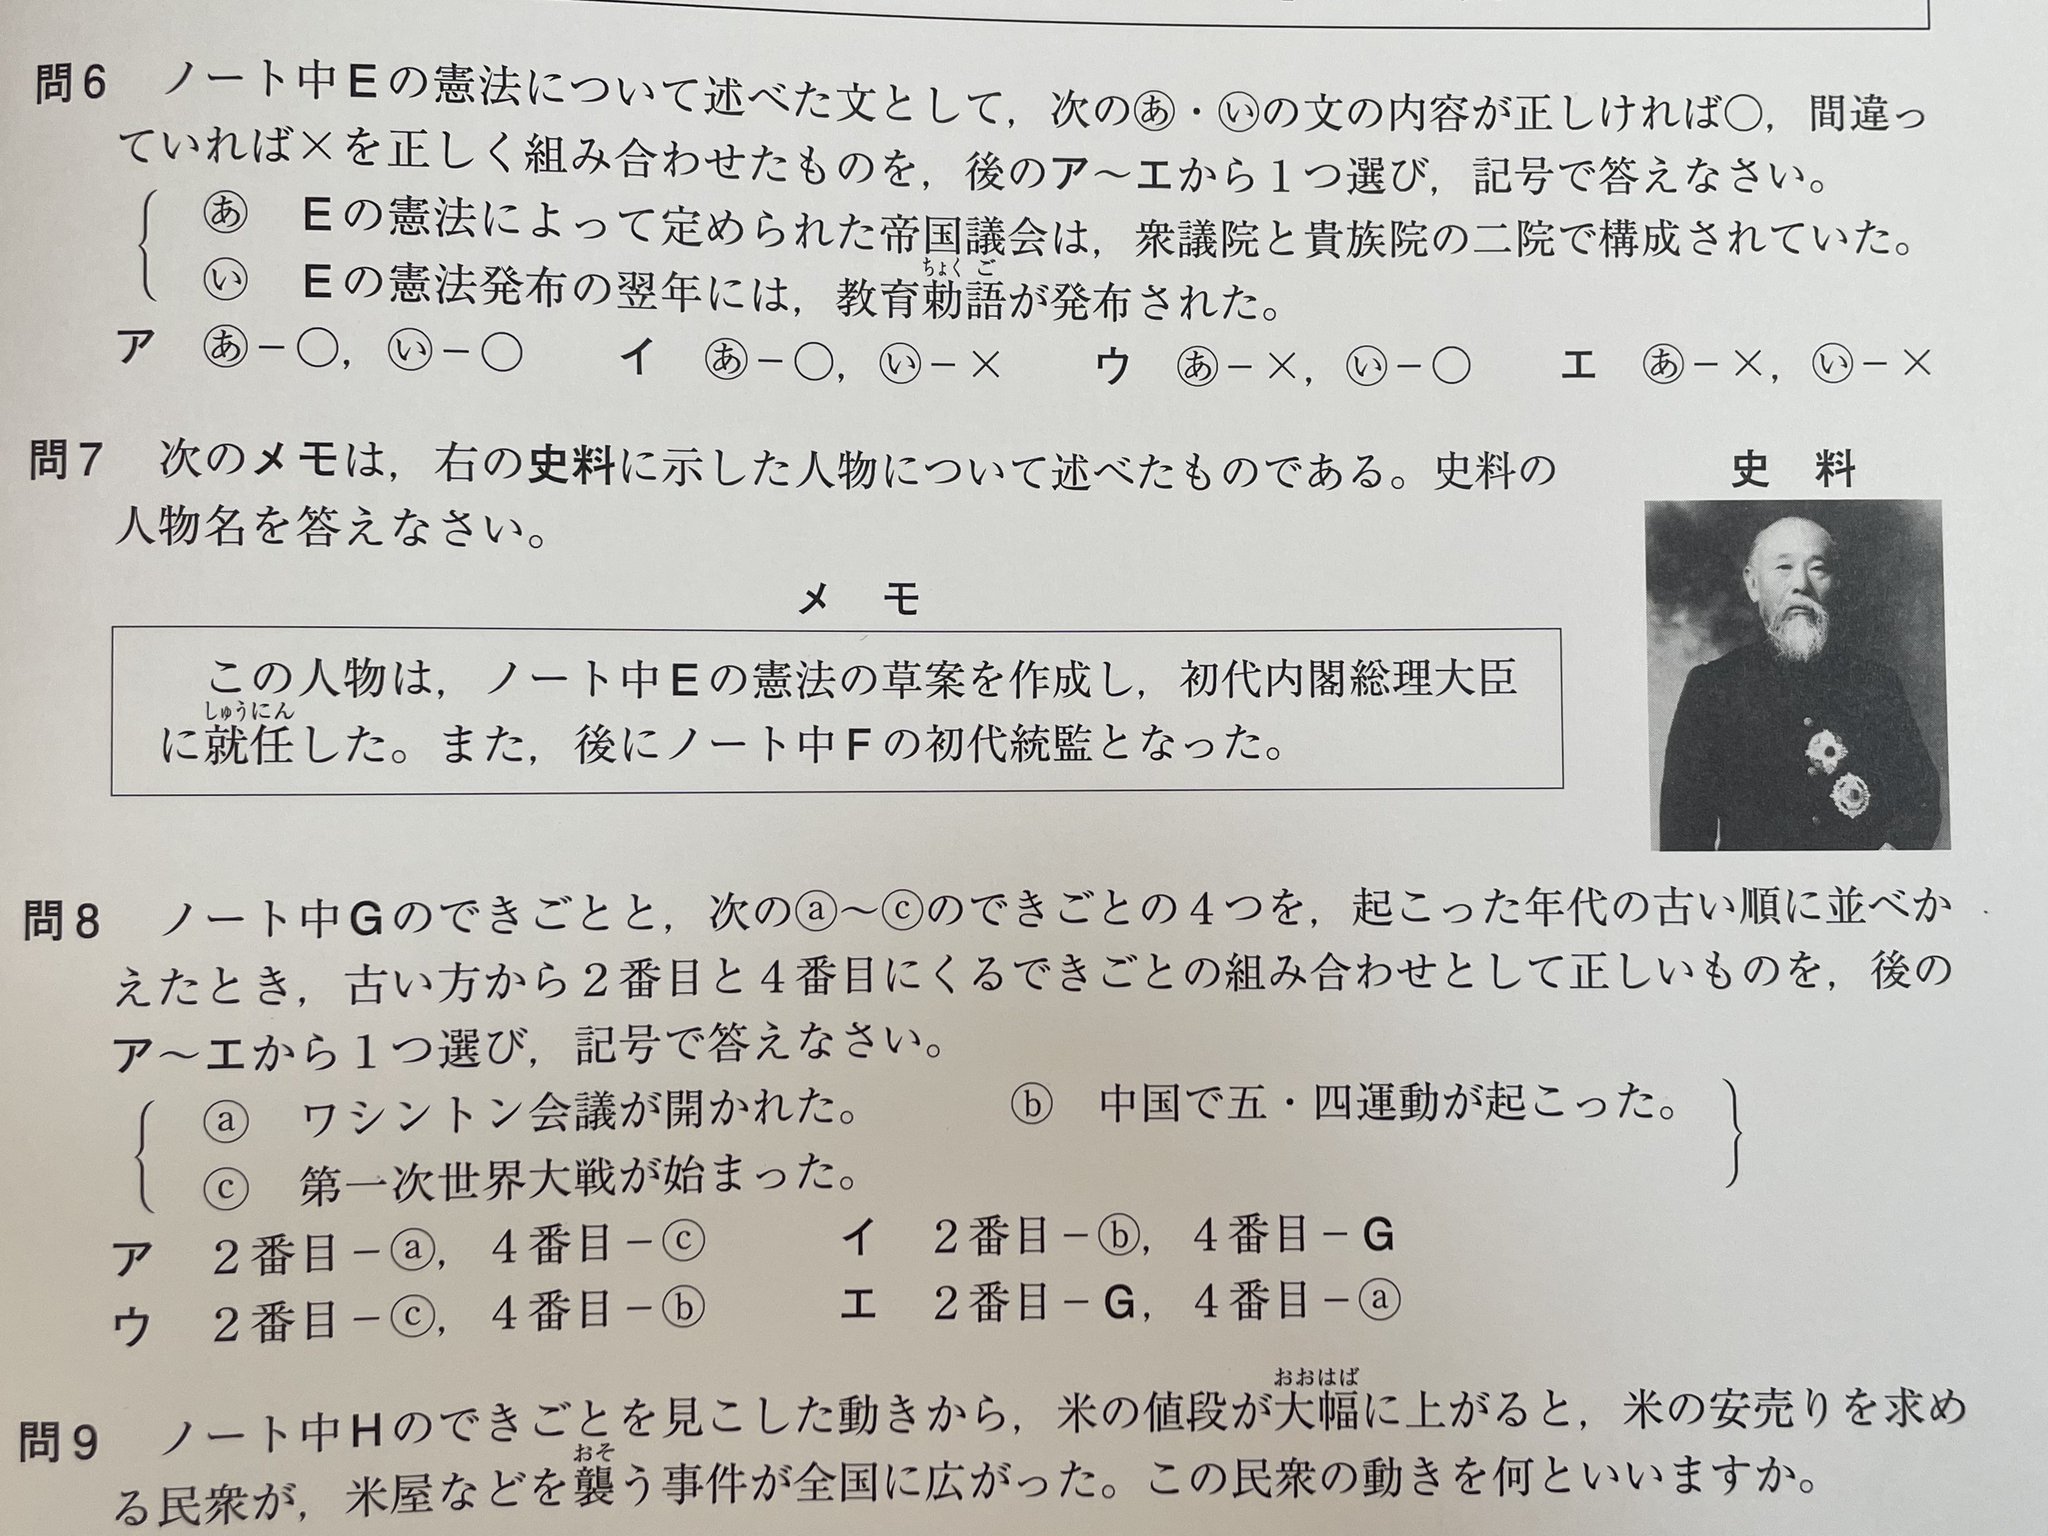 問6　ノート中Eの憲法について述べた文として，次のあ・いの文の内容が正しければ○，間違っ
ていれば×を正しく組み合わせたものを，後のア～エから1つ選び，記号で答えなさい。
あ　Eの憲法によって定められた帝国議会は，衆議院と貴族院の二院で構成されていた。
い　Eの憲法発布の翌年には，教育勅語が発布された。
ちょくご
ア　あ－○，い－○　　イ　あ－○，い－×　　ウ　あ－×，い－○　　エ　あ－×，い－×
問7　次のメモは，右の史料に示した人物について述べたものである。史料の
人物名を答えなさい。
史　料
メ　モ
この人物は，ノート中Eの憲法の草案を作成し，初代内閣総理大臣
に就任した。また，後にノート中Fの初代統監となった。
しゅうにん
問8　ノート中Gのできごとと，次のⓐ～ⓒのできごとの4つを，起こった年代の古い順に並べか
えたとき，古い方から2番目と4番目にくるできごとの組み合わせとして正しいものを，後の
ア～エから1つ選び，記号で答えなさい。
ⓐ　ワシントン会議が開かれた。　　ⓑ　中国で五・四運動が起こった。
ⓒ　第一次世界大戦が始まった。
ア　2番目－ⓐ，4番目－ⓒ　　イ　2番目－ⓑ，4番目－G
ウ　2番目－ⓒ，4番目－ⓑ　　エ　2番目－G，4番目－ⓐ
問9　ノート中Hのできごとを見こした動きから，米の値段が大幅に上がると，米の安売りを求め
おおはば
る民衆が，米屋などを襲う事件が全国に広がった。この民衆の動きを何といいますか。
おそ